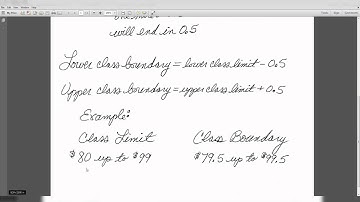 will end in 0.5
Lower class boundary = lower class limit - 0.5
Upper class boundary = upper class limit + 0.5
Example:
Class Limit Class Boundary
$80 up to $99 $79.5 up to $99.5